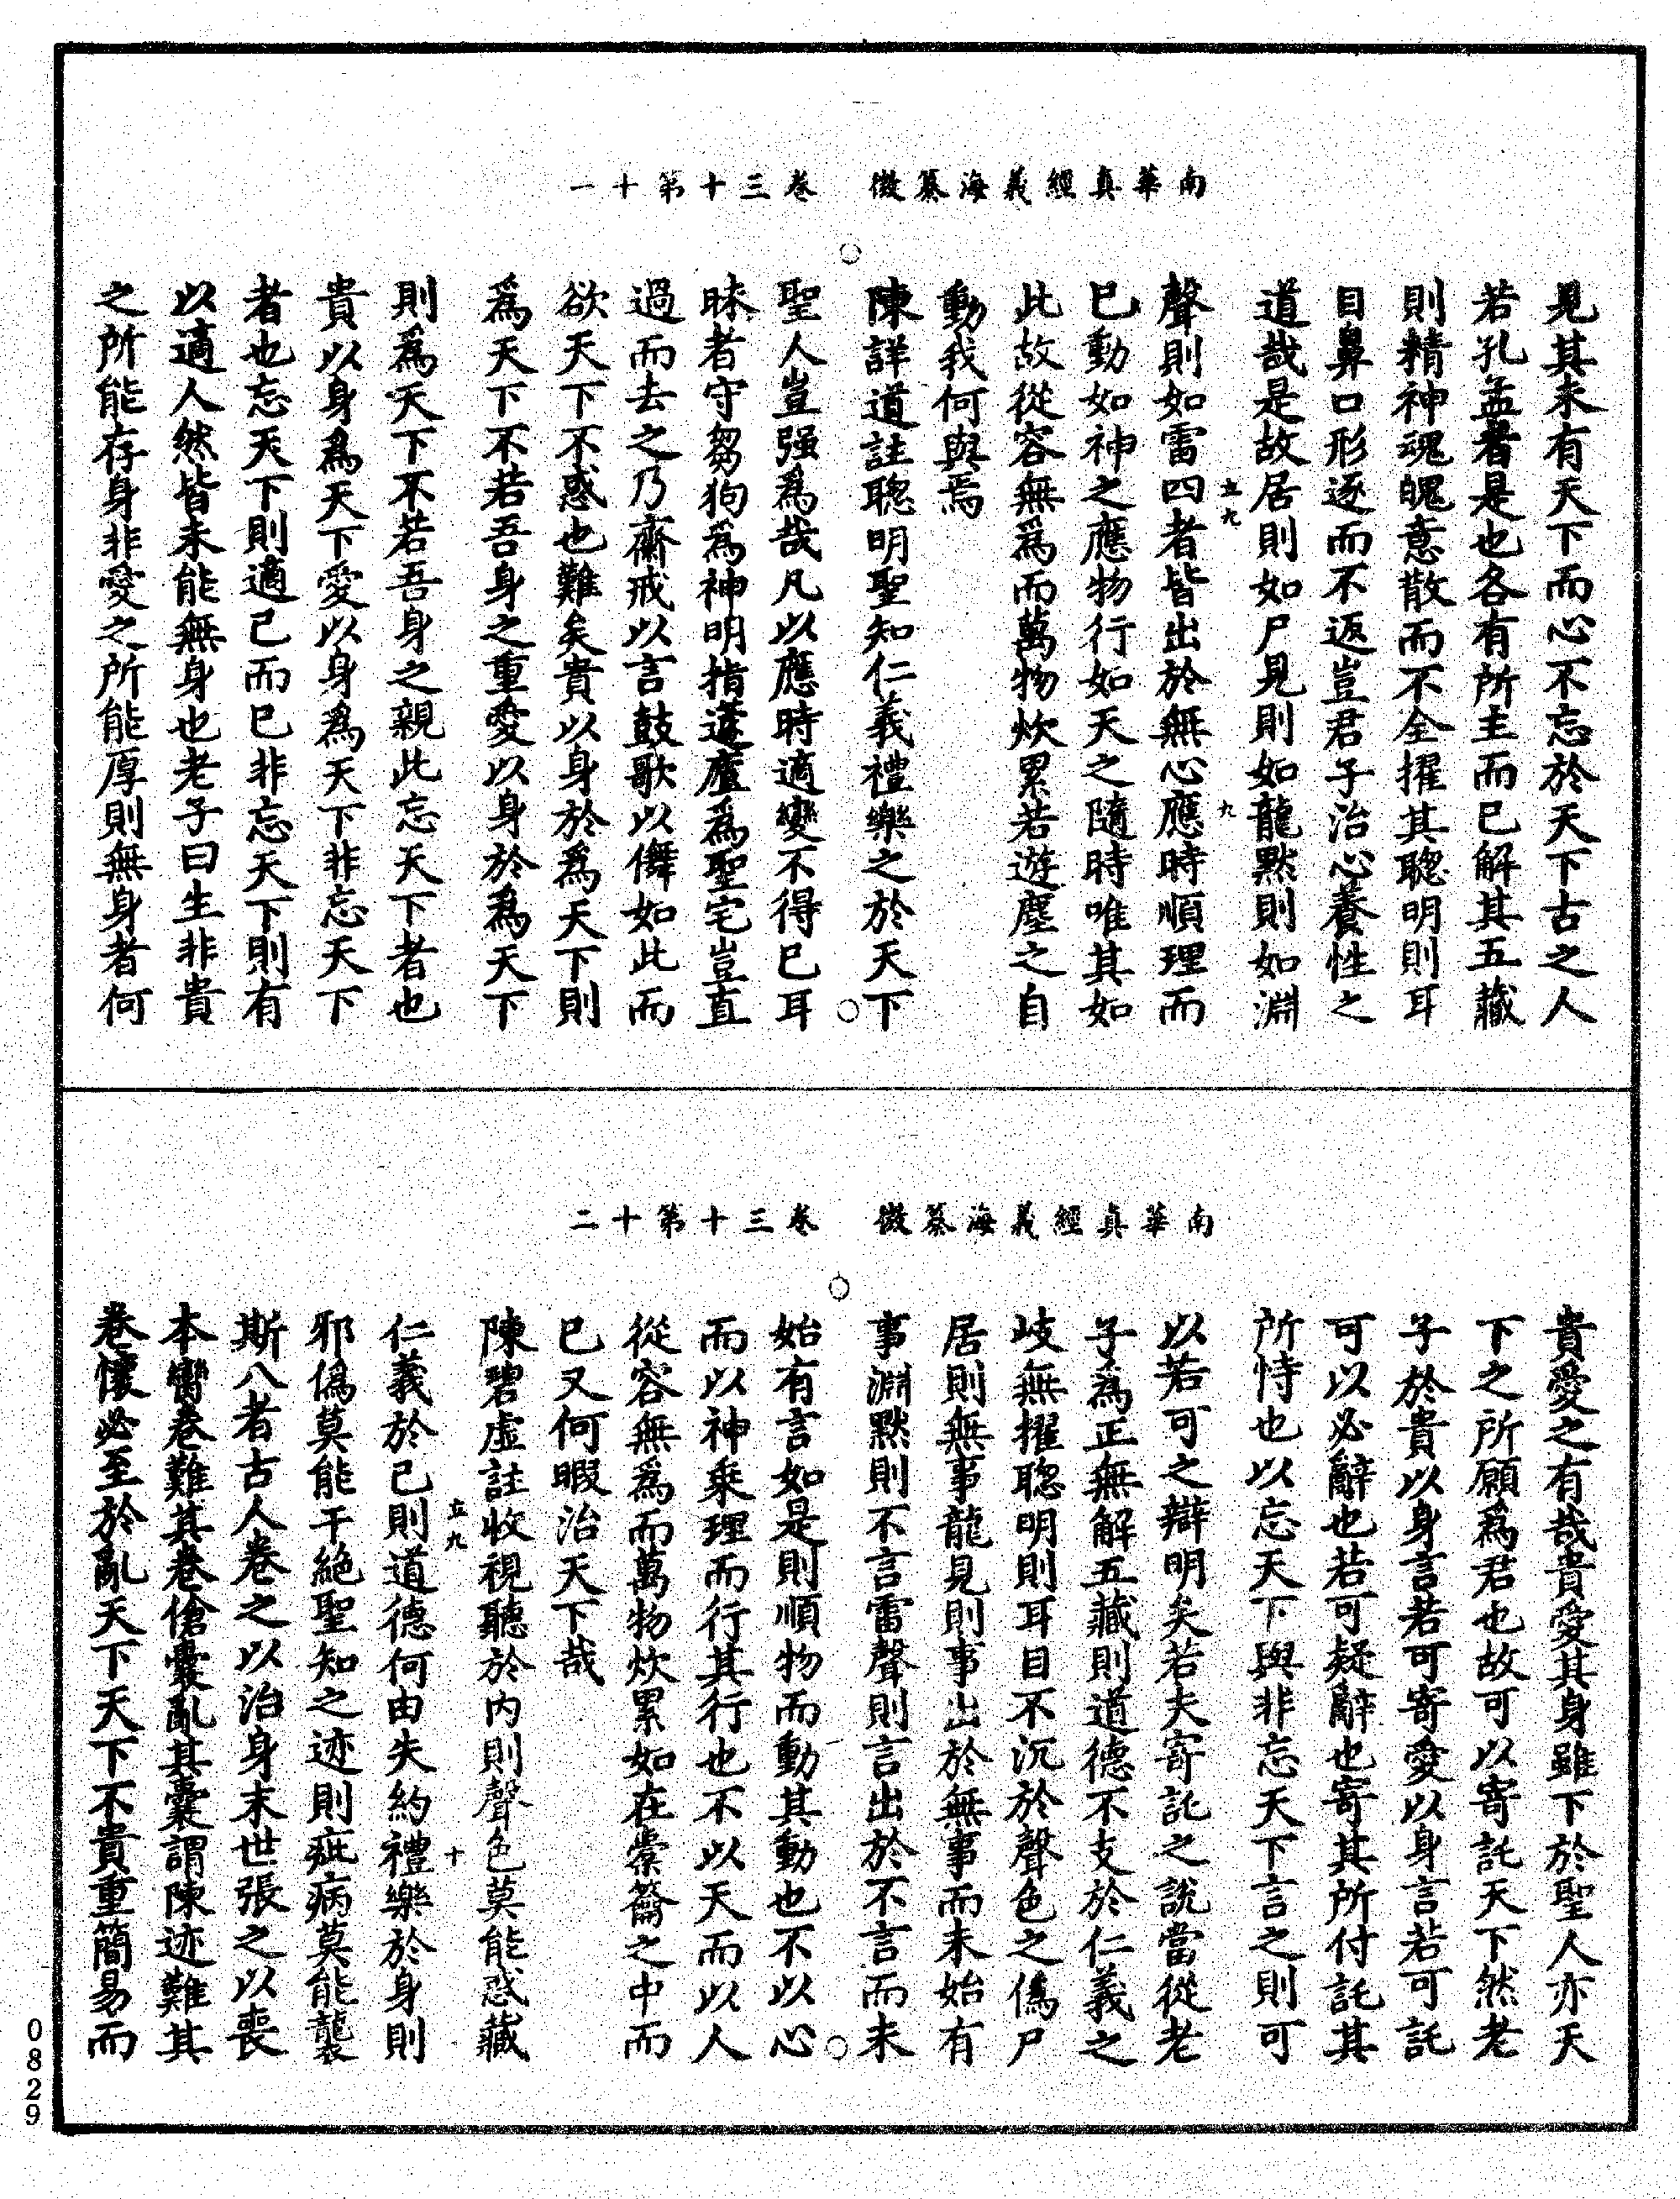 南華真經義海纂微　卷三十第十一
見其未有天下而心不忘於天下古之人
若孔孟者是也各有所主而已解其五藏
則精神魂魄意散而不全擢其聦明則耳
目鼻口形逐而不返豈君子治心養性之
道哉是故居則如尸見則如龍黙則如淵
立九
九
聲則如雷四者皆出於無心應時順理而
已動如神之應物行如天之隨時唯其如
此故從容無爲而萬物炊累若遊塵之自
動我何與焉
陳詳道註聦明聖知仁義禮樂之於天下
聖人豈强爲哉凡以應時適變不得已耳
昧者守芻狗爲神明指蘧廬爲聖宅豈直
過而去之乃齋戒以言鼓歌以儛如此而
欲天下不惑也難矣貴以身於爲天下則
爲天下不若吾身之重愛以身於爲天下
則爲天下不若吾身之親此忘天下者也
貴以身爲天下愛以身爲天下非忘天下
者也忘天下則適己而已非忘天下則有
以適人然皆未能無身也老子曰生非貴
之所能存身非愛之所能厚則無身者何
南華真經義海纂微　卷三十第十二
貴愛之有哉貴愛其身雖下於聖人亦天
下之所願爲君也故可以寄託天下然老
子於貴以身言若可寄愛以身言若可託
可以必辭也若可疑辭也寄其所付託其
所恃也以忘天下與非忘天下言之則可
以若可之辯明矣若夫寄託之說當從老
子爲正無解五藏則道德不支於仁義之
岐無擢聦明則耳目不沉於聲色之僞尸
居則無事龍見則事出於無事而未始有
事淵黙則不言雷聲則言出於不言而未
始有言如是則順物而動其動也不以心
而以神乘理而行其行也不以天而以人
從容無爲而萬物炊累如在橐籥之中而
已又何暇治天下哉
陳碧虛註收視聽於内則聲色莫能惑藏
立九
十
仁義於己則道德何由失約禮樂於身則
邪僞莫能干絶聖知之迹則疵病莫能襲
斯八者古人卷之以治身末世張之以喪
本臠卷難其卷傖囊亂其囊謂陳迹難其
卷懷必至於亂天下天下不貴重簡易而
0829